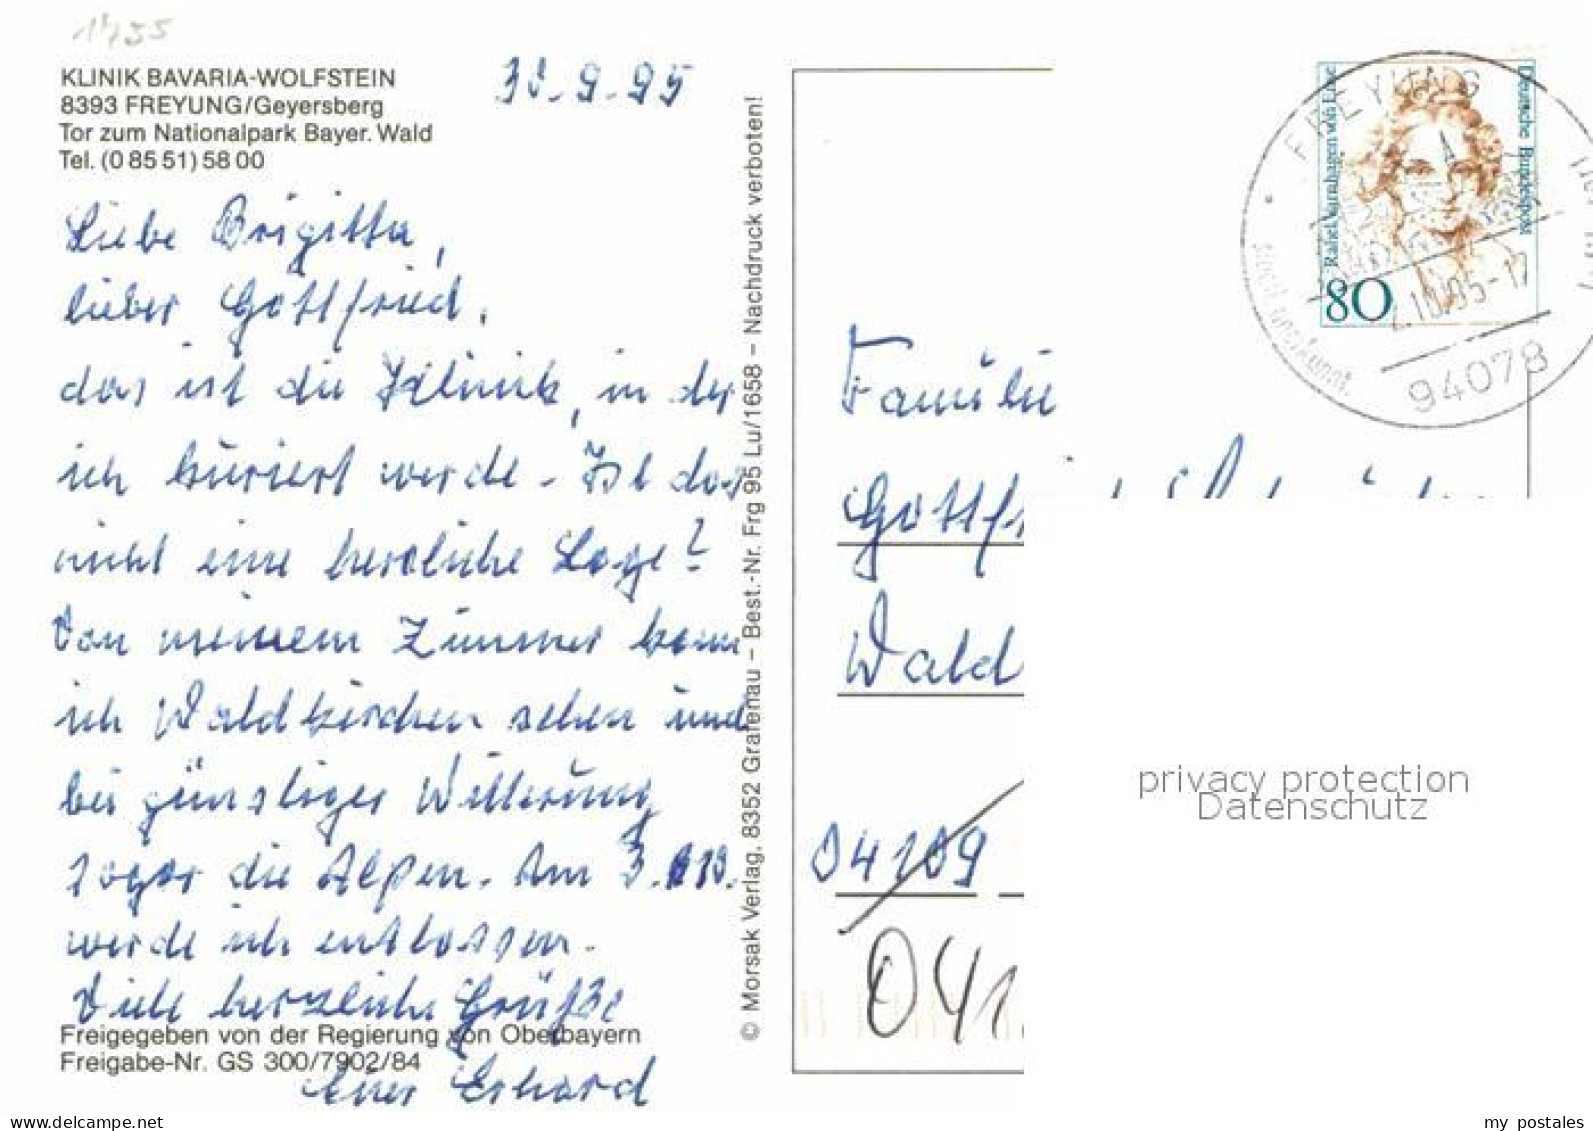 1455
KLINIK BAVARIA-WOLFSTEIN
8393 FREYUNG/Geyersberg
Tor zum Nationalpark Bayer. Wald
Tel. (0 85 51) 58 00
30.9.95
Liebe Brigitta,
lieber Gottfried,
das ist die Klinik, in der
ich kuriert werde. Ist das
nicht eine herrliche Lage?
Von meinem Zimmer kann
ich Waldkirchen sehen und
bei günstiger Witterung
sogar die Alpen. Am 3.10.
werde ich entlassen.
Viele herzliche Grüße
Freigegeben von der Regierung von Oberbayern
Freigabe-Nr. GS 300/7902/84
Euer Erhard
© Morsak Verlag, 8352 Grafenau – Best.-Nr. Frg 95 Lu/1658 – Nachdruck verboten!
Rahel Varnhagen von Ense
Deutsche Bundespost
80
FREYUNG
2.10.95-17
94078
Familie
Gottf
Wald
04109
041
privacy protection
Datenschutz
www.delcampe.net
my postales